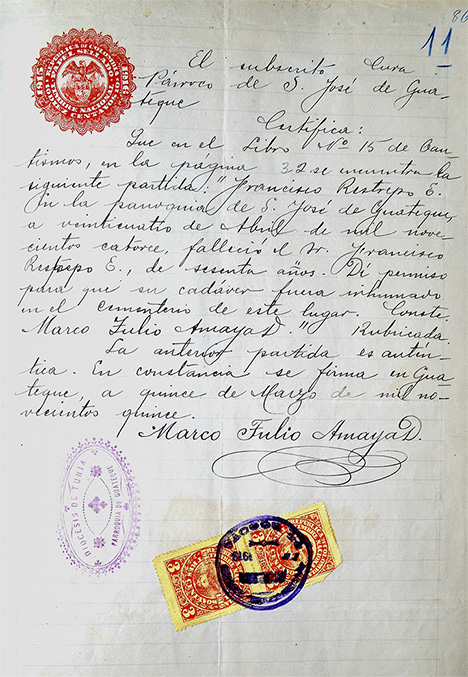 86
11
El subscrito Cura
Párroco de S. José de Gua-
teque
Certifica:
Que en el Libro Nº 15 de Bau-
tismos, en la página 32 se encuentra la
siguiente partida: "Francisco Restrepo E.
En la parroquia de S. José de Guateque,
a veinticuatro de Abril de mil nove-
cientos catorce, falleció el Sr. Francisco
Restrepo E., de sesenta años. Di permiso
para que su cadáver fuera inhumado
en el cementerio de este lugar. Conste.
Marco Julio Amaya D." Rubricada.
La anterior partida es autén-
tica. En constancia se firma en Gua-
teque, a quince de Marzo de mil no-
vecientos quince.
Marco Julio Amaya D.
DIOCESIS DE TUNJA
PARROQUIA DE GUATEQUE
3
3